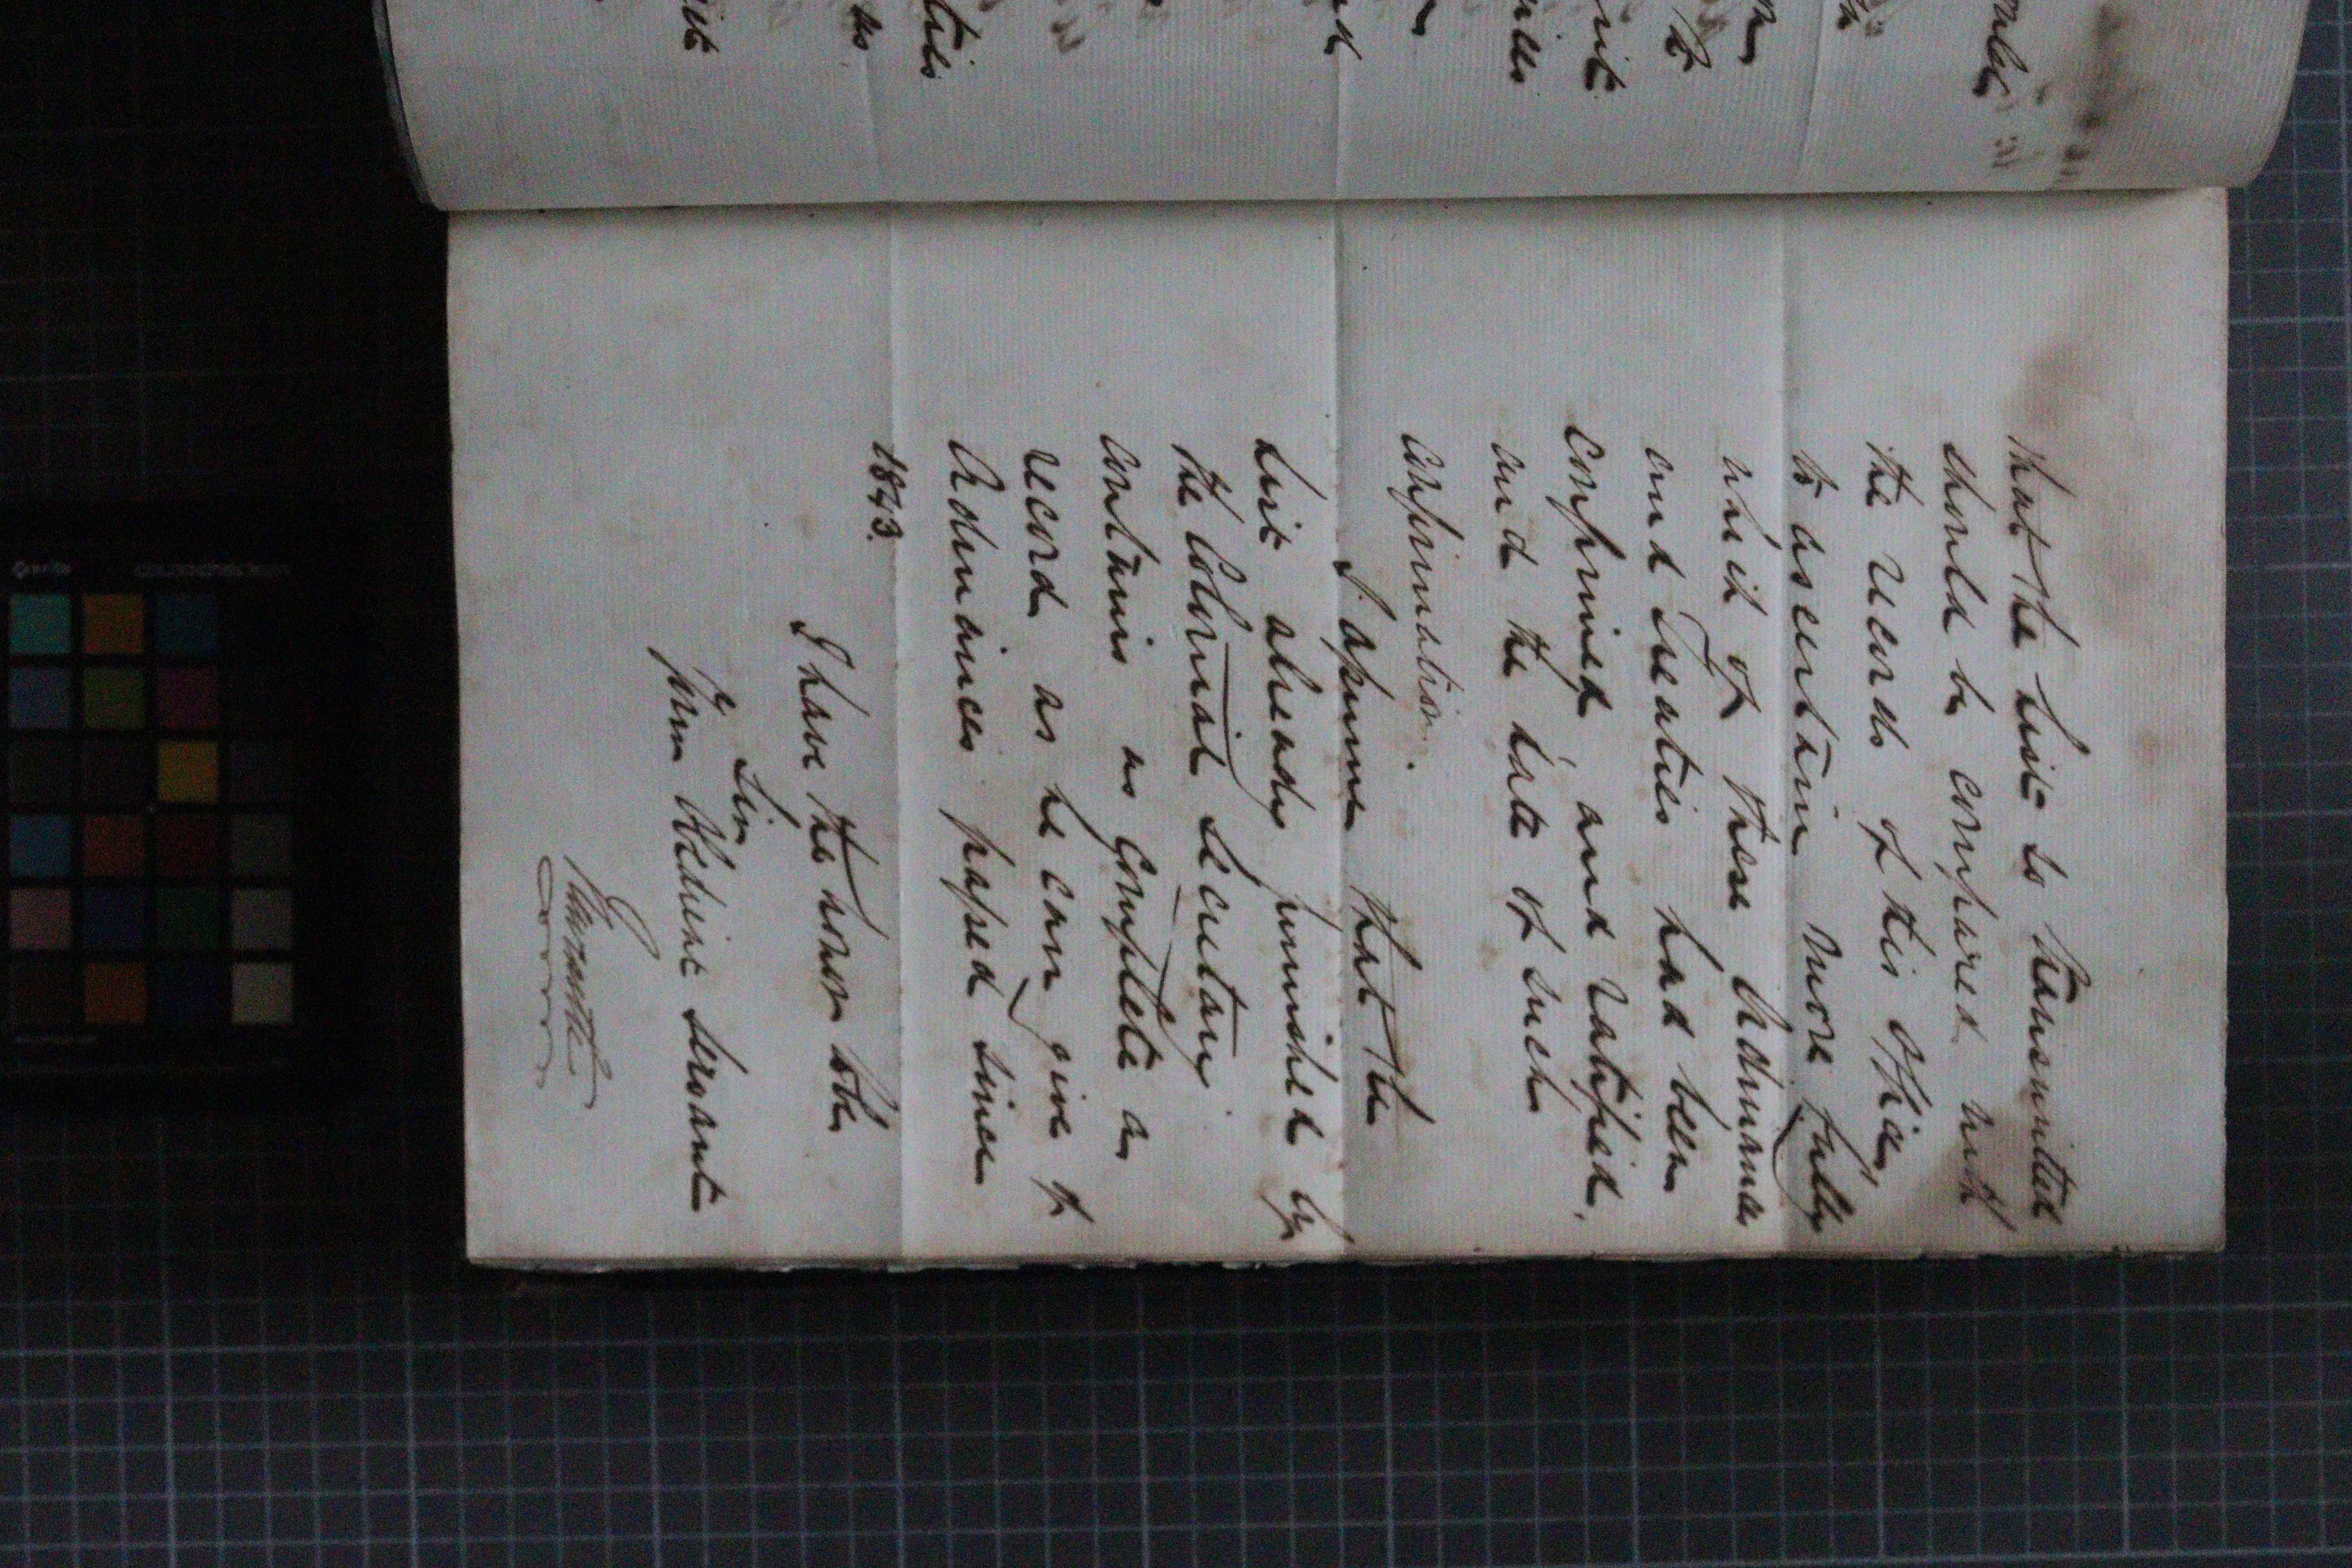 that the list so transmitted
should be compared with
the records of this office,
to ascertain more fully
which of these Ordinances
and Treaties had been
confirmed and ratified,
and the date of such
confirmation.
I assume that the
list already furnished by
the Colonial Secretary
contains as complete a
record as he can give of
Ordinances passed since
1843.
I have the honor to be
Sir,
Yr
Obedient servant